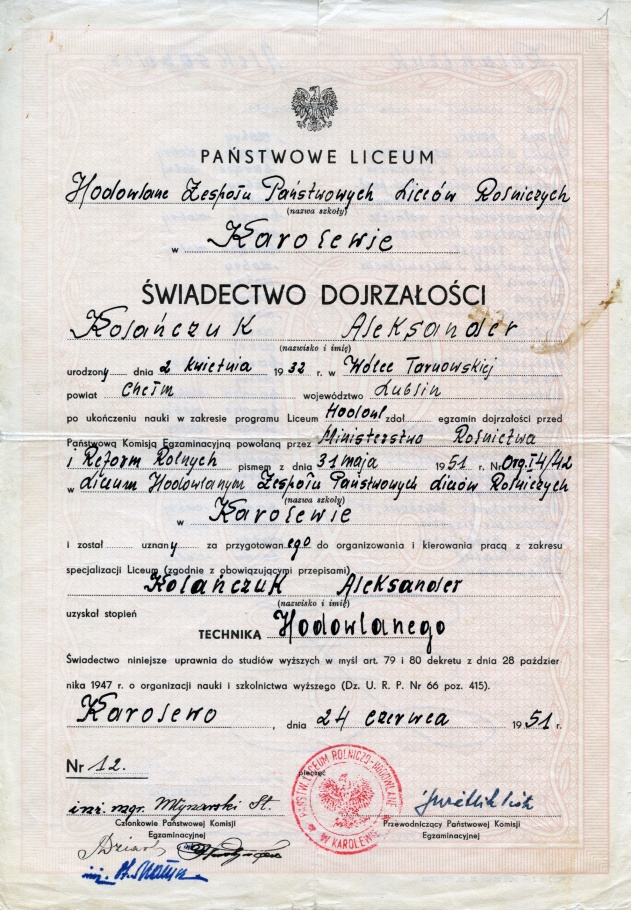 1
PAŃSTWOWE LICEUM
Hodowlane Zespołu Państwowych Liceów Rolniczych
(nazwa szkoły)
w Karolewie
ŚWIADECTWO DOJRZAŁOŚCI
Kolańczuk Aleksander
(nazwisko i imię)
urodzony dnia 2 kwietnia 1932 r. w Wólce Tarnowskiej
powiat Chełm województwo Lublin
po ukończeniu nauki w zakresie programu Liceum Hodowl zdał egzamin dojrzałości przed
Państwową Komisją Egzaminacyjną powołaną przez Ministerstwo Rolnictwa
i Reform Rolnych pismem z dnia 31 maja 1951 r. Nr Org.I4/42
w Liceum Hodowlanym Zespołu Państwowych Liceów Rolniczych
(nazwa szkoły)
w Karolewie
i został uznany za przygotowanego do organizowania i kierowania pracą z zakresu
specjalizacji Liceum (zgodnie z obowiązującymi przepisami)
Kolańczuk Aleksander
(nazwisko i imię)
uzyskał stopień
TECHNIKA Hodowlanego
Świadectwo niniejsze uprawnia do studiów wyższych w myśl art. 79 i 80 dekretu z dnia 28 paździer
nika 1947 r. o organizacji nauki i szkolnictwa wyższego (Dz. U. R. P. Nr 66 poz. 415).
Karolewo, dnia 24 czerwca 1951 r.
Nr 12.
pieczęć
PAŃSTW. LICEUM ROLNICZO-HODOWLANE
W KAROLEWIE
inż. mgr. Młynarski St.
Członkowie Państwowej Komisji
Egzaminacyjnej
Przewodniczący Państwowej Komisji
Egzaminacyjnej
inż.